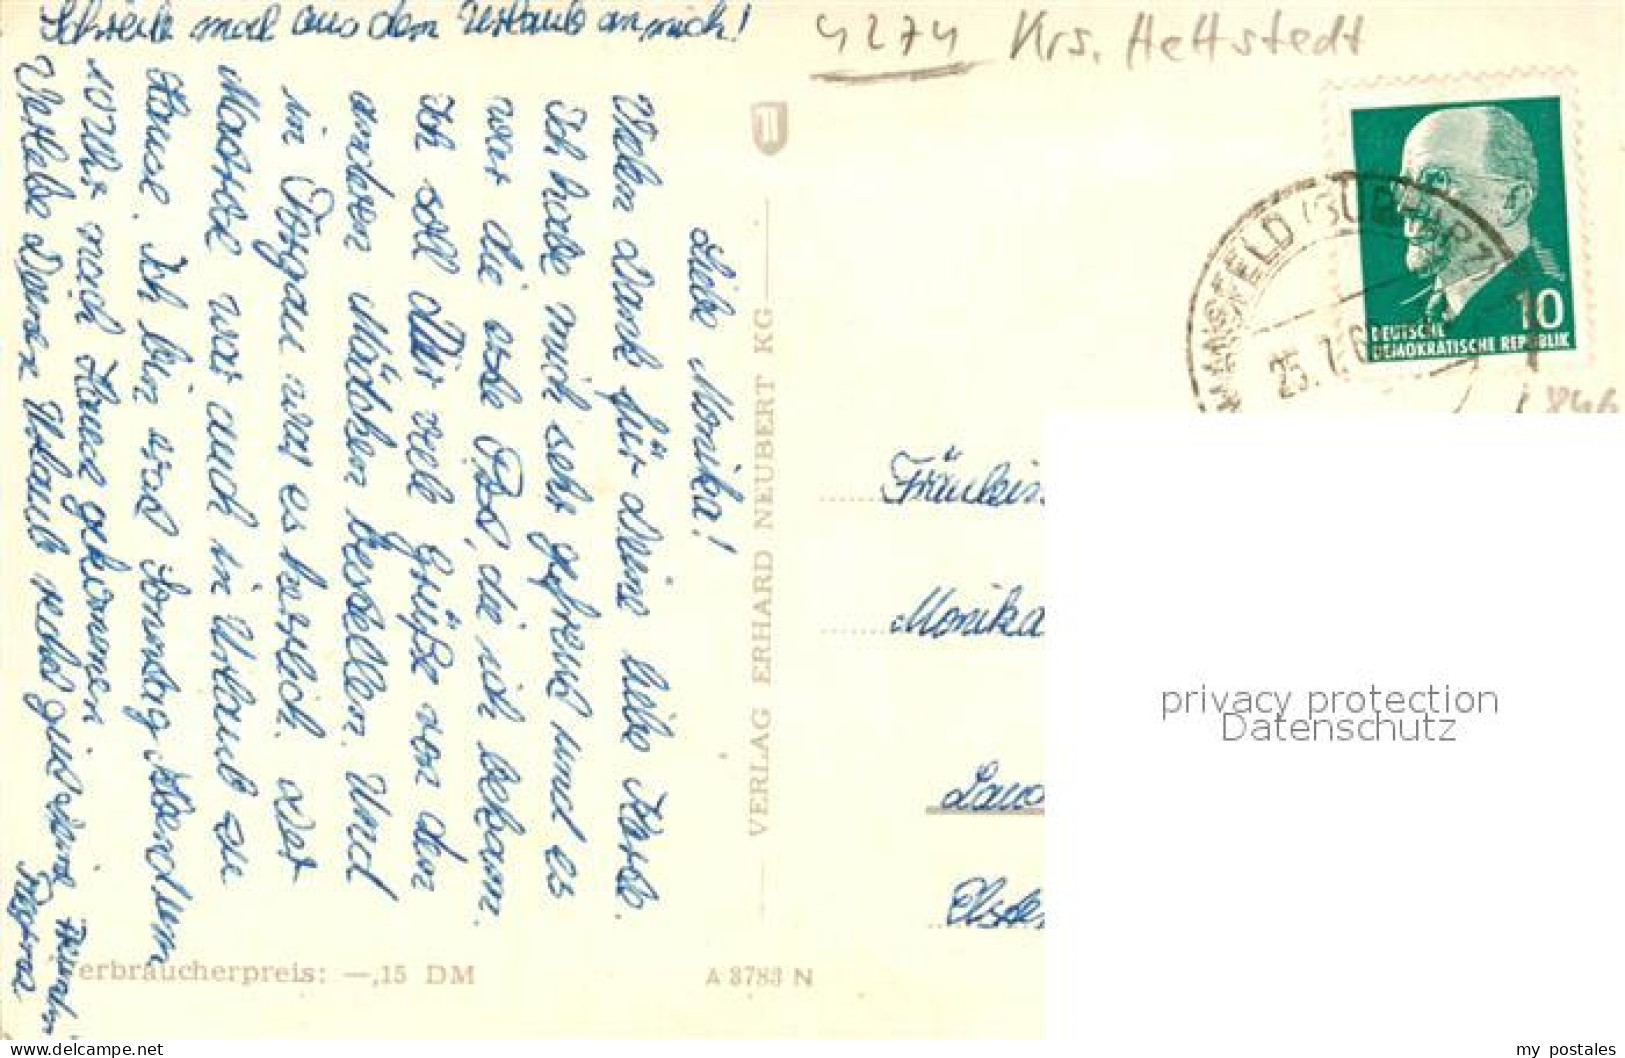 Schreib mal aus dem Urlaub an mich!
4274 Krs. Hettstedt
Liebe Monika!
Vielen Dank für Deine liebe Karte.
Ich habe mich sehr gefreut und es
war die erste Post, die ich bekam.
Ich soll Dir viele Grüße von den
anderen Mädchen bestellen. Und
in Torgau war es herrlich. Der
war auch in Urlaub zu
Hause. Ich bin erst Sonntag Abend um
10 Uhr nach Hause gekommen
Verlebe Deinen Urlaub recht gut
VERLAG ERHARD NEUBERT KG
erbraucherpreis: —,15 DM
A 3783 N
MANSFELD (SÜDHARZ)
25.7.6
10
DEUTSCHE
DEMOKRATISCHE REPUBLIK
846
Fräulein
Monika
privacy protection
Datenschutz
my_postales
www.delcampe.net